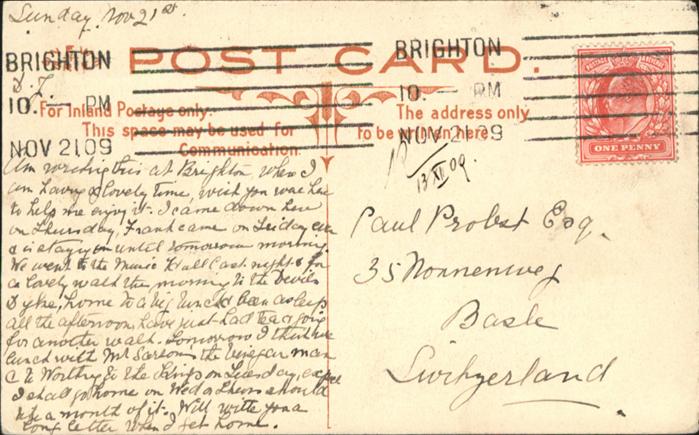 Sunday. Nov 21st.
BRIGHTON
10. — PM
NOV 21 09
BRIGHTON
10. — PM
NOV 21 09
POST CARD.
For Inland Postage only.
This space may be used for
Communication.
The address only
to be written here.
ONE PENNY
13 XI 09.
Am writing this at Brighton where I
am having a lovely time, wish you were here
to help me enjoy it. I came down here
on Thursday, Frank came on Friday eve
& is staying on until tomorrow morning.
We went to the Music Hall last night & for
a lovely walk this morning to the Devils
Dyke, home to a big lunch been asleep
all the afternoon, have just had tea & going
for another walk. Tomorrow I
lunch with Mr the vinegar man
& to Worthing to the on Tuesday, expect
I shall go home on Wed or Thurs should
a month of it. Will write you a
long letter when I get home.
Paul Probst Esq.
35 Nonnenweg
Basle
Switzerland